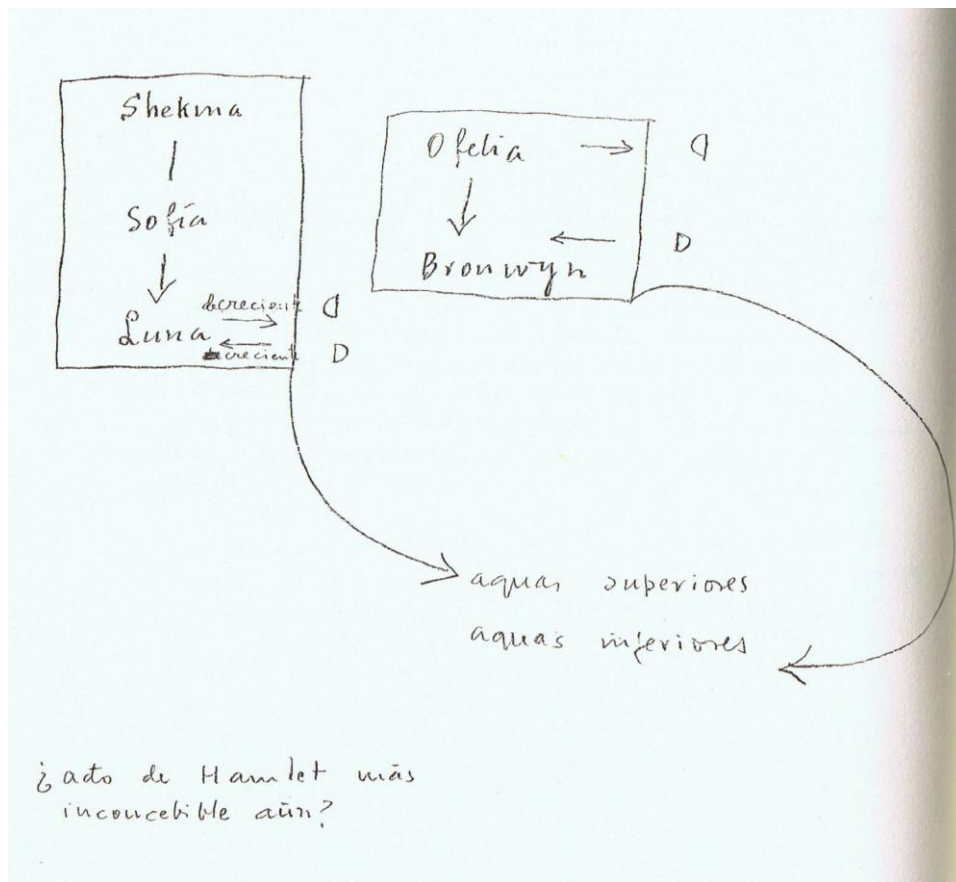 Shekina
Sofía
Luna
decreciente
creciente D
Ofelia
D
Bronwyn
aguas superiores
aguas inferiores
¿acto de Hamlet más
inconcebible aún?